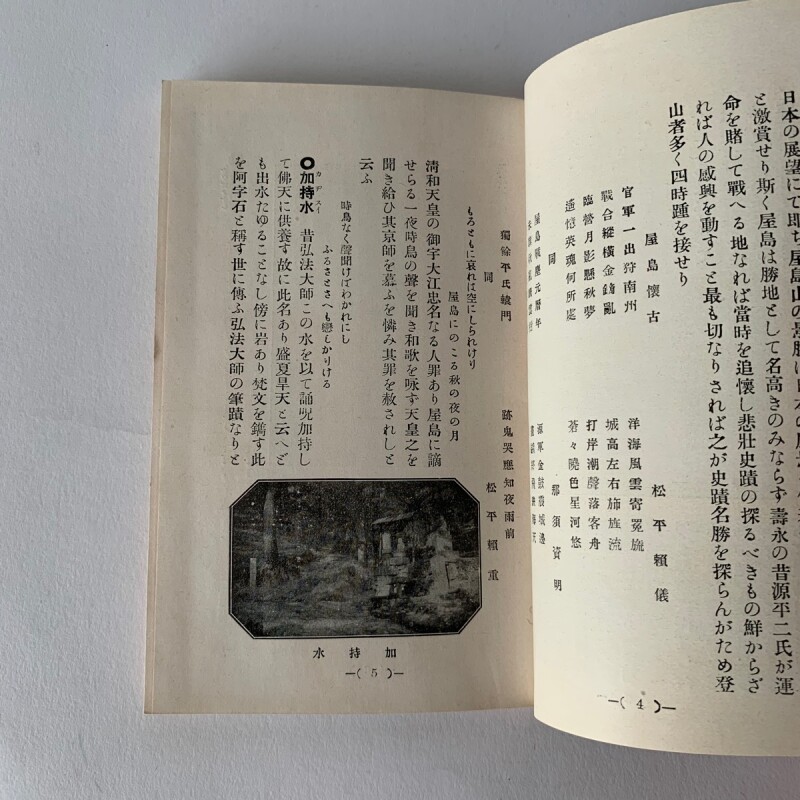 日本の展望にて即ち屋島山の景勝は日本の
と激賞せり斯く屋島は勝地として名高きのみならず壽永の昔源平二氏が運
命を賭して戰へる地なれば當時を追懷し悲壯史蹟の探るべきもの鮮からざ
れば人の感興を動すこと最も切なりされば之が史蹟名勝を探らんがため登
山者多く四時踵を接せり
屋島懷古
松平賴儀
官軍一出狩南州
洋海風雲寄冕旒
戰合縱橫金鏑亂
城高左右旆旌流
臨營月影懸秋夢
打岸潮聲落客舟
遙憶英魂何所處
蒼々曉色星河悠
同
那須資明
屋島戰塵元曆年
源軍金鼓震城邊
獨餘平氏轅門
跡鬼哭應知夜雨前
同
松平賴重
もろともに哀れは空にしられけり
屋島にのこる秋の夜の月
淸和天皇の御宇大江忠名なる人罪あり屋島に謫
せらる一夜時鳥の聲を聞き和歌を咏す天皇之を
聞き給ひ其京師を慕ふを憐み其罪を赦されしと
云ふ
時鳥なく聲聞けばわかれにし
ふるさとさへも戀しかりける
〇加持水 昔弘法大師この水を以て誦呪加持し
て佛天に供養す故に此名あり盛夏旱天と云へど
も出水たゆることなし傍に岩あり梵文を鐫す此
を阿字石と稱す世に傳ふ弘法大師の筆蹟なりと
加持水
—( 5 )—
—( 4 )—